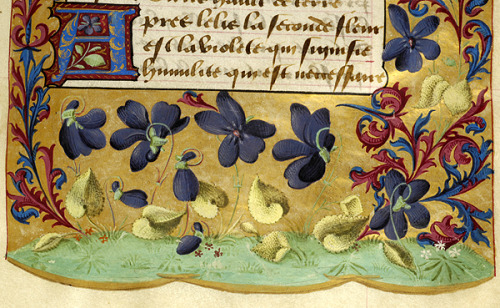 haut de terre
pres le lis la seconde fleur
est la violete qui signifie
humilite qui est necessaire